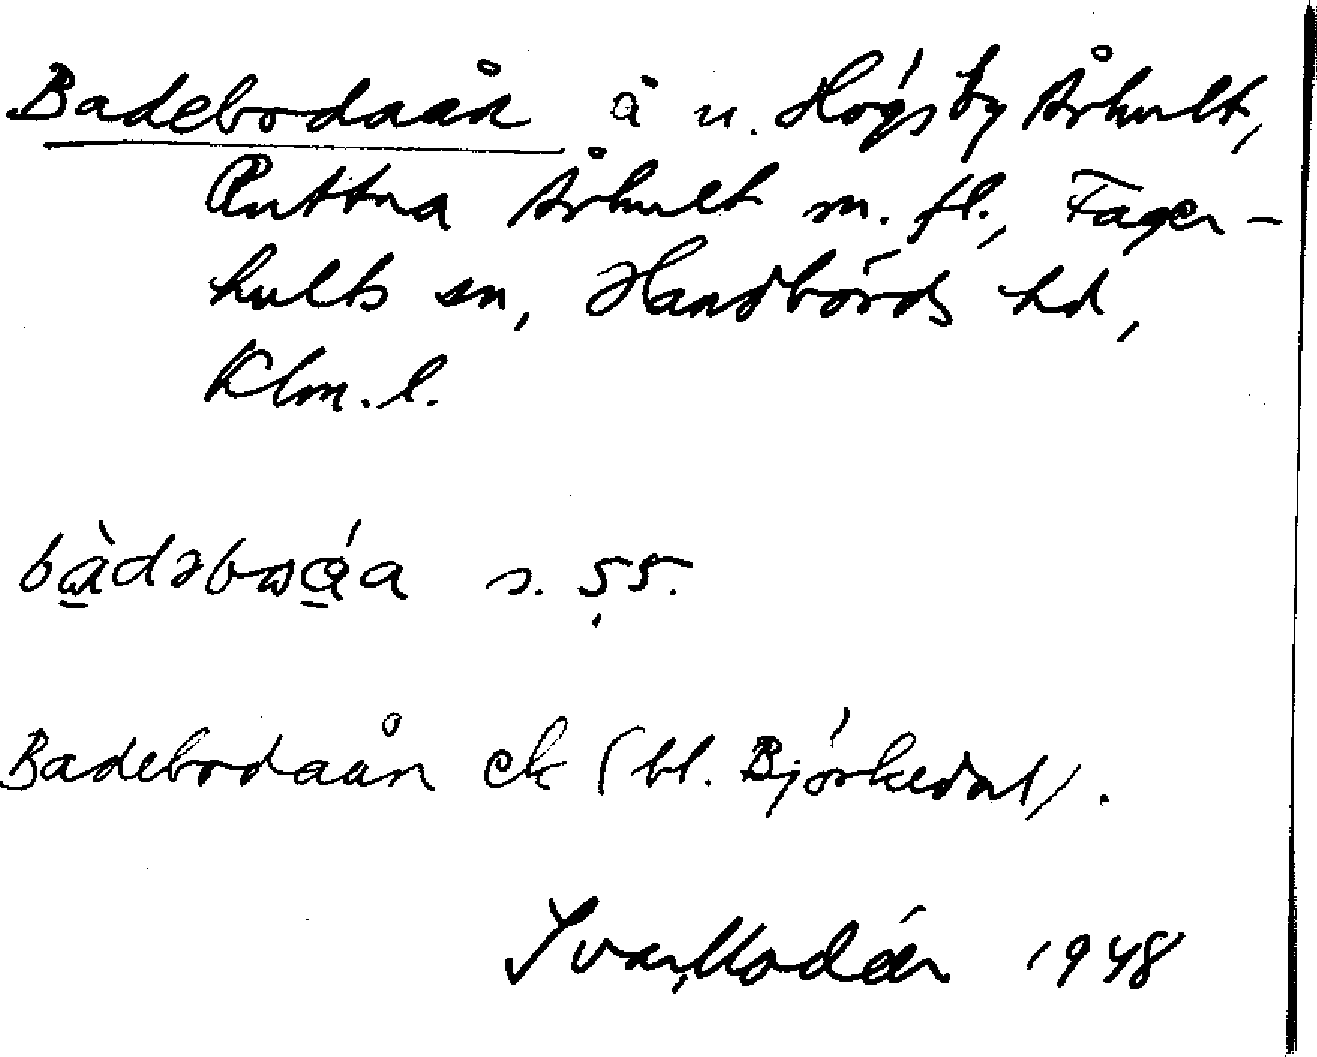 Badebodaån å u. Högsby Århult,
Ruttna Århult m. fl., Fager-
hults sn, Handbörds hd,
Klm. l.
bàdəbωá̱a s. 55.
Badebodaån ek (bl. Björkedal).
Ivar Modéer 1948